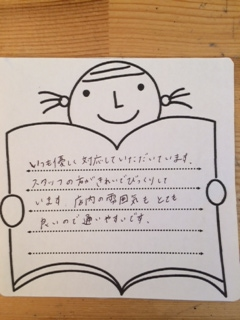 いつも優しい対応していただいています。
スタッフの方がきれいでびっくりして
います 店内の雰囲気も とても
良いので通いやすいです。